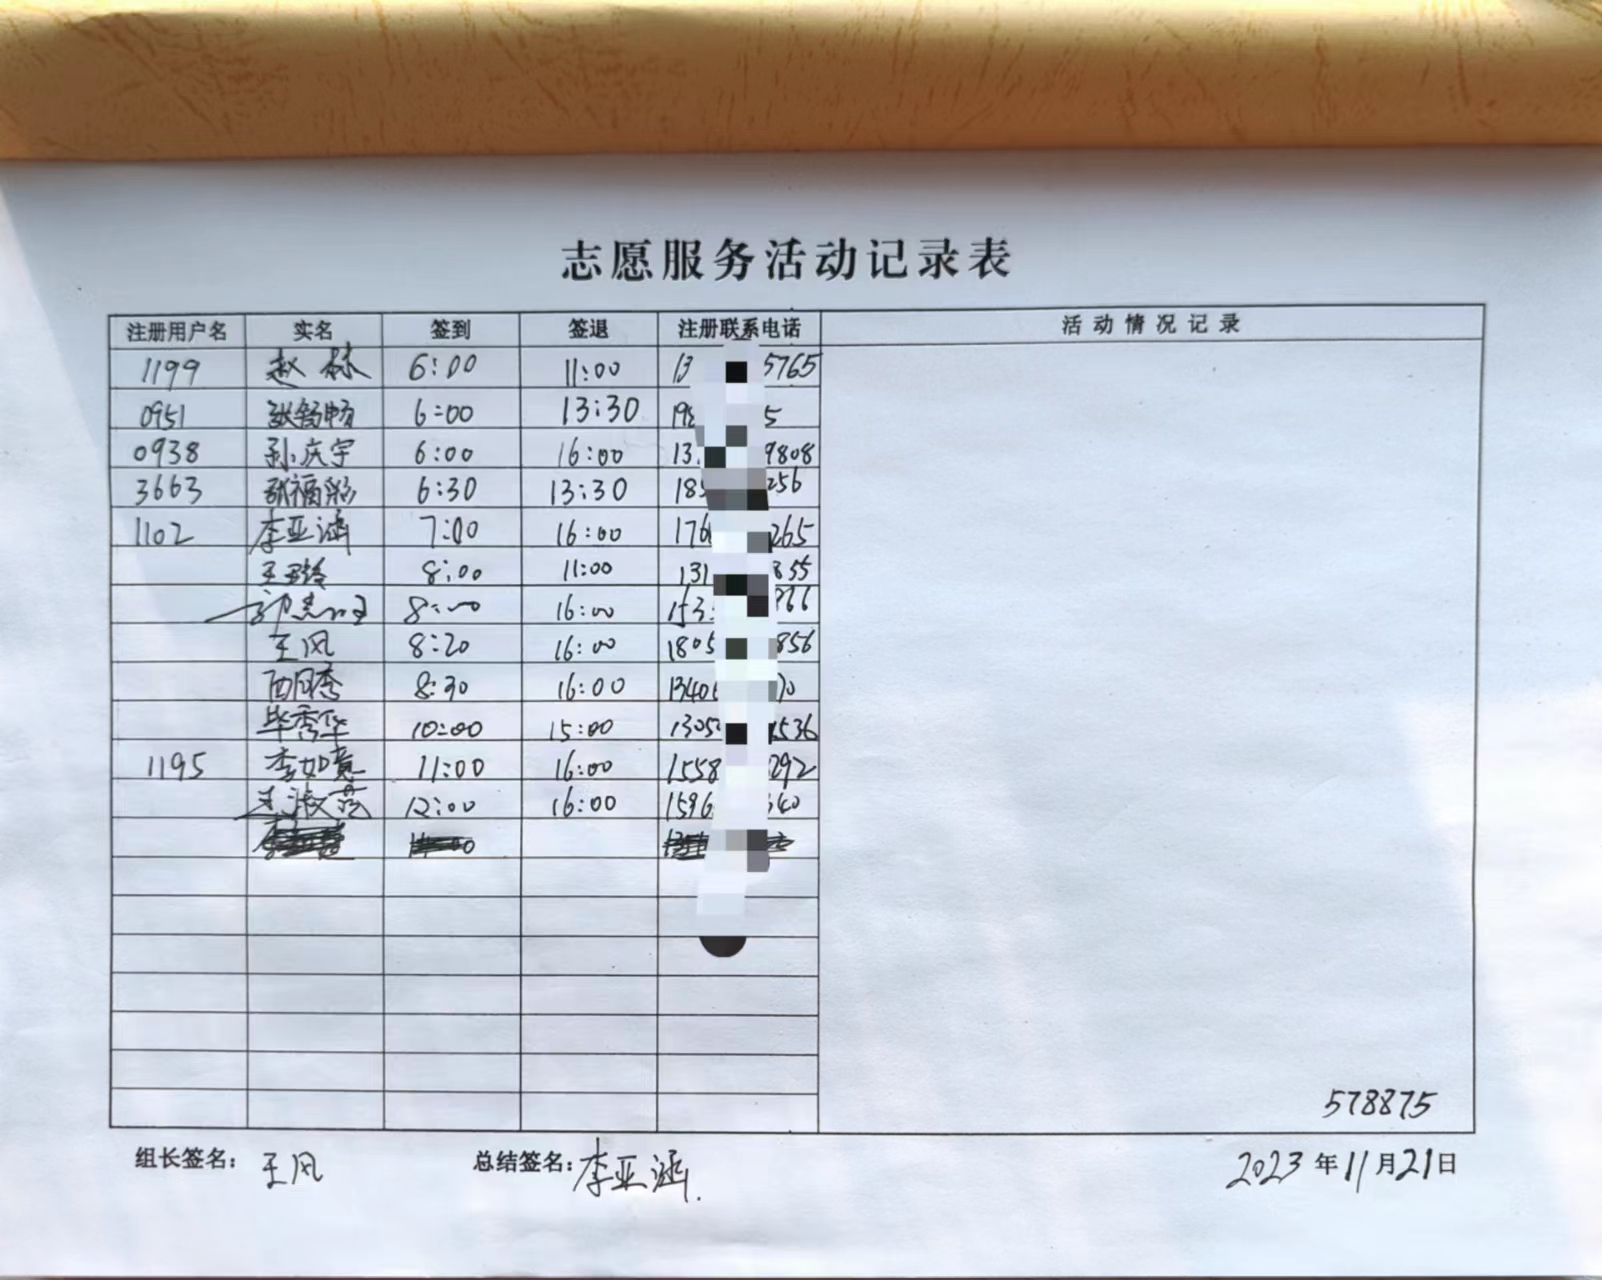 志愿服务活动记录表
注册用户名 实名 签到 签退 注册联系电话 活动情况记录
1199 赵林 6:00 11:00 13 5765
0951 张舒畅 6:00 13:30 198 5
0938 孙庆宇 6:00 16:00 13 9808
3663 张福彩 6:30 13:30 185 256
1102 李亚涵 7:00 16:00 176 265
王玉玲 8:00 11:00 131 855
8:00 16:00 153 866
王风 8:20 16:00 1805 856
8:30 16:00 1340 70
毕秀华 10:00 15:00 1305 1536
1195 李如意 11:00 16:00 1558 292
12:00 16:00 1596 40
578875
组长签名：王风 总结签名：李亚涵. 2023年11月21日